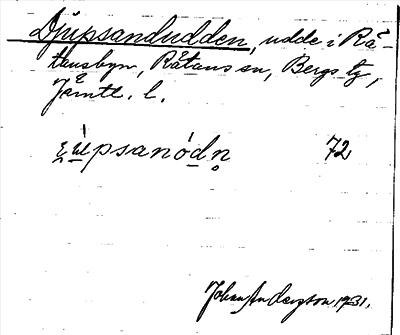 Djupsandudden, udde i Rå-
tansbyn, Råtans sn, Bergs tg,
Jämtl. l.
psanódn 72
Johan Anderzson 1931.